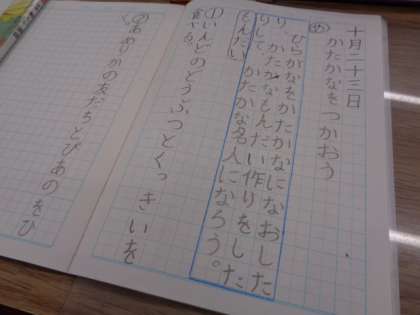 十月二十三日
め かたかなをつかおう
ひらがなをかたかなになおした
り、かたかなもんだい作りをした
りして、かたかな名人になろう。
もんだい
①いんどのどうぶつとくっきいを
食べる。
②あめりかの友だちとぴあのをひ
く。